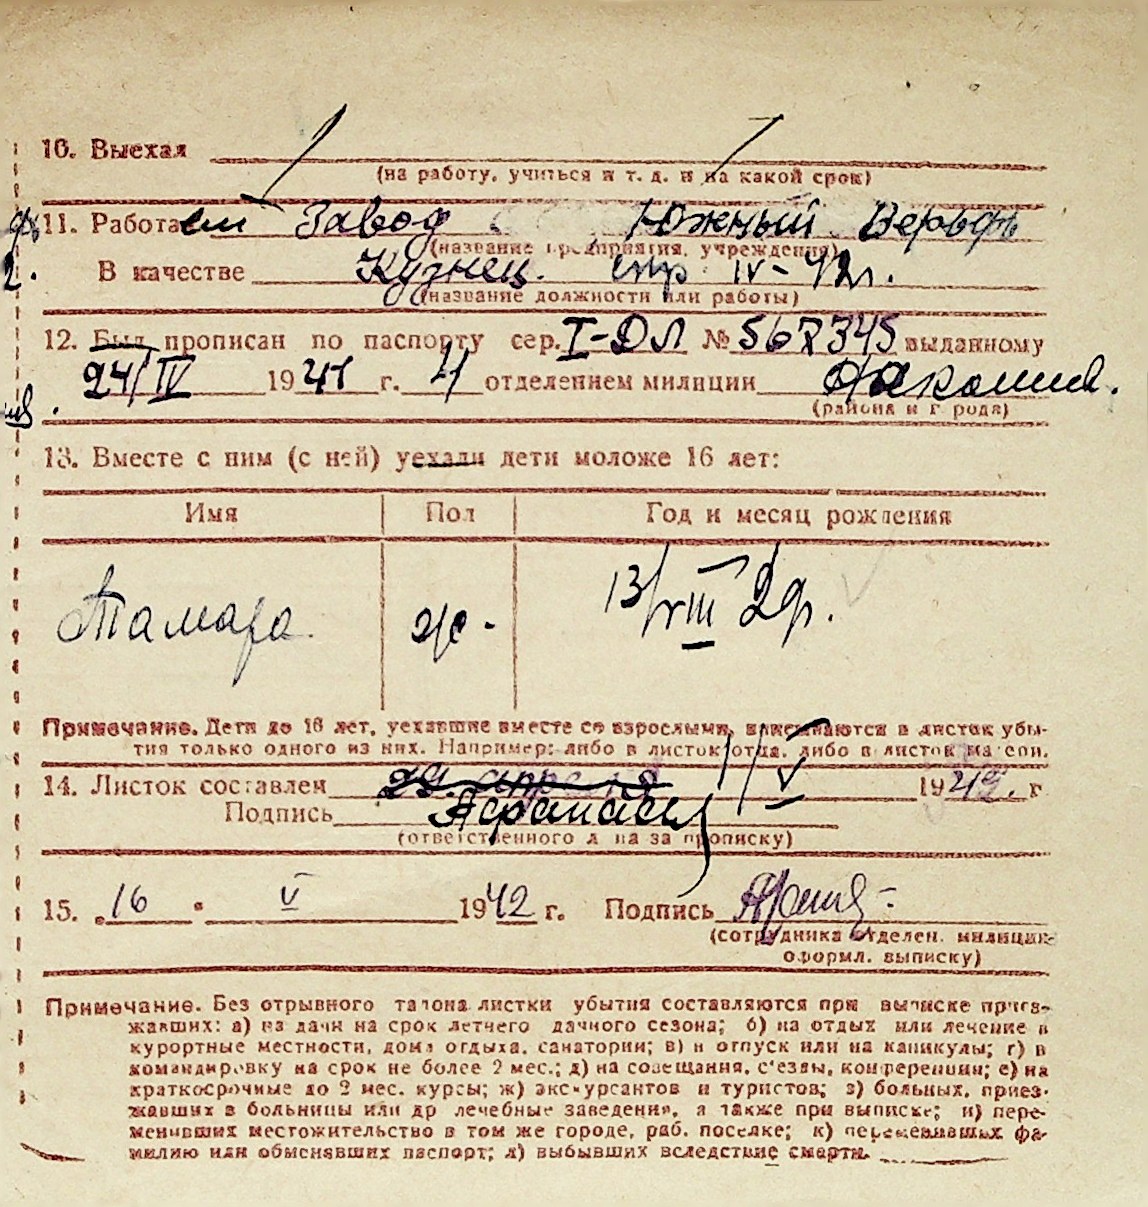 10. Выехал
(на работу, учиться и т. д. и на какой срок)
11. Работает Завод Южный Верьфь
(название предприятия, учреждения)
В качестве Кузнец. IV-42г.
(название должности или работы)
12. Был прописан по паспорту сер. I-ДЛ № 567345 выданному
24/IV 1941 г. 4 отделением милиции
(района и города)
13. Вместе с ним (с ней) уехали дети моложе 16 лет:
Имя Пол Год и месяц рождения
Тамара ж. 13/VIII
Примечание. Дети до 16 лет, уехавшие вместе со взрослыми, вписываются в листок убы-
тия только одного из них. Например: либо в листок отца, либо в листок матери.
14. Листок составлен 29 апреля 1/V 1942. г
Подпись
(ответственного лица за прописку)
15. 16 V 1942 г. Подпись
(сотрудника отделен. милиции
оформл. выписку)
Примечание. Без отрывного талона листки убытия составляются при выписке приез-
жавших: а) на дачи на срок летнего дачного сезона; б) на отдых или лечение в
курортные местности, дома отдыха, санатории; в) в отпуск или на каникулы; г) в
командировку на срок не более 2 мес.; д) на совещания, с'езды, конференции; е) на
краткосрочные до 2 мес. курсы; ж) экскурсантов и туристов; з) больных, приез-
жавших в больницы или др лечебные заведения, а также при выписке; и) пере-
менивших местожительство в том же городе, раб. поселке; к) переменивших фа-
милию или обменявших паспорт; л) выбывших вследствие смерти.